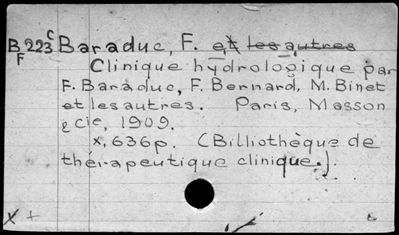 B 223 c Baraduc, F. et les autres
F Clinique hydrologique par
F. Baraduc, F. Bernard, M. Binet
et les autres. Paris, Masson
& cie, 1909.
x, 636p. (Billiothèque de
thérapeutique clinique.).
x +